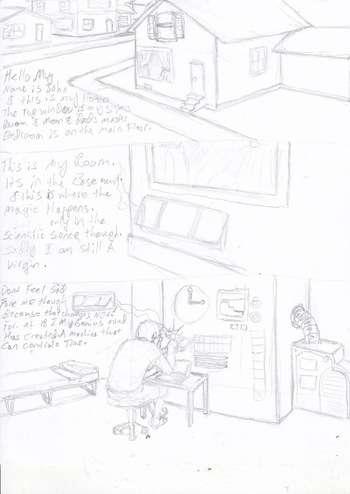 Hello My
Name is John
& this is my Home
The Top window is my sisters
Room & mom & Dads master
Bedroom is on the main Floor.
This is my Room.
Its in the Basement.
& this is where the
magic Happens.
only in the
Scientific sence though.
Sadly I am still A
Virgin.
Dont Feel Sad
Fore me though
Because that changes Now.
For at 18 My Genius mind
Has Created A machine that
Can controle Time.